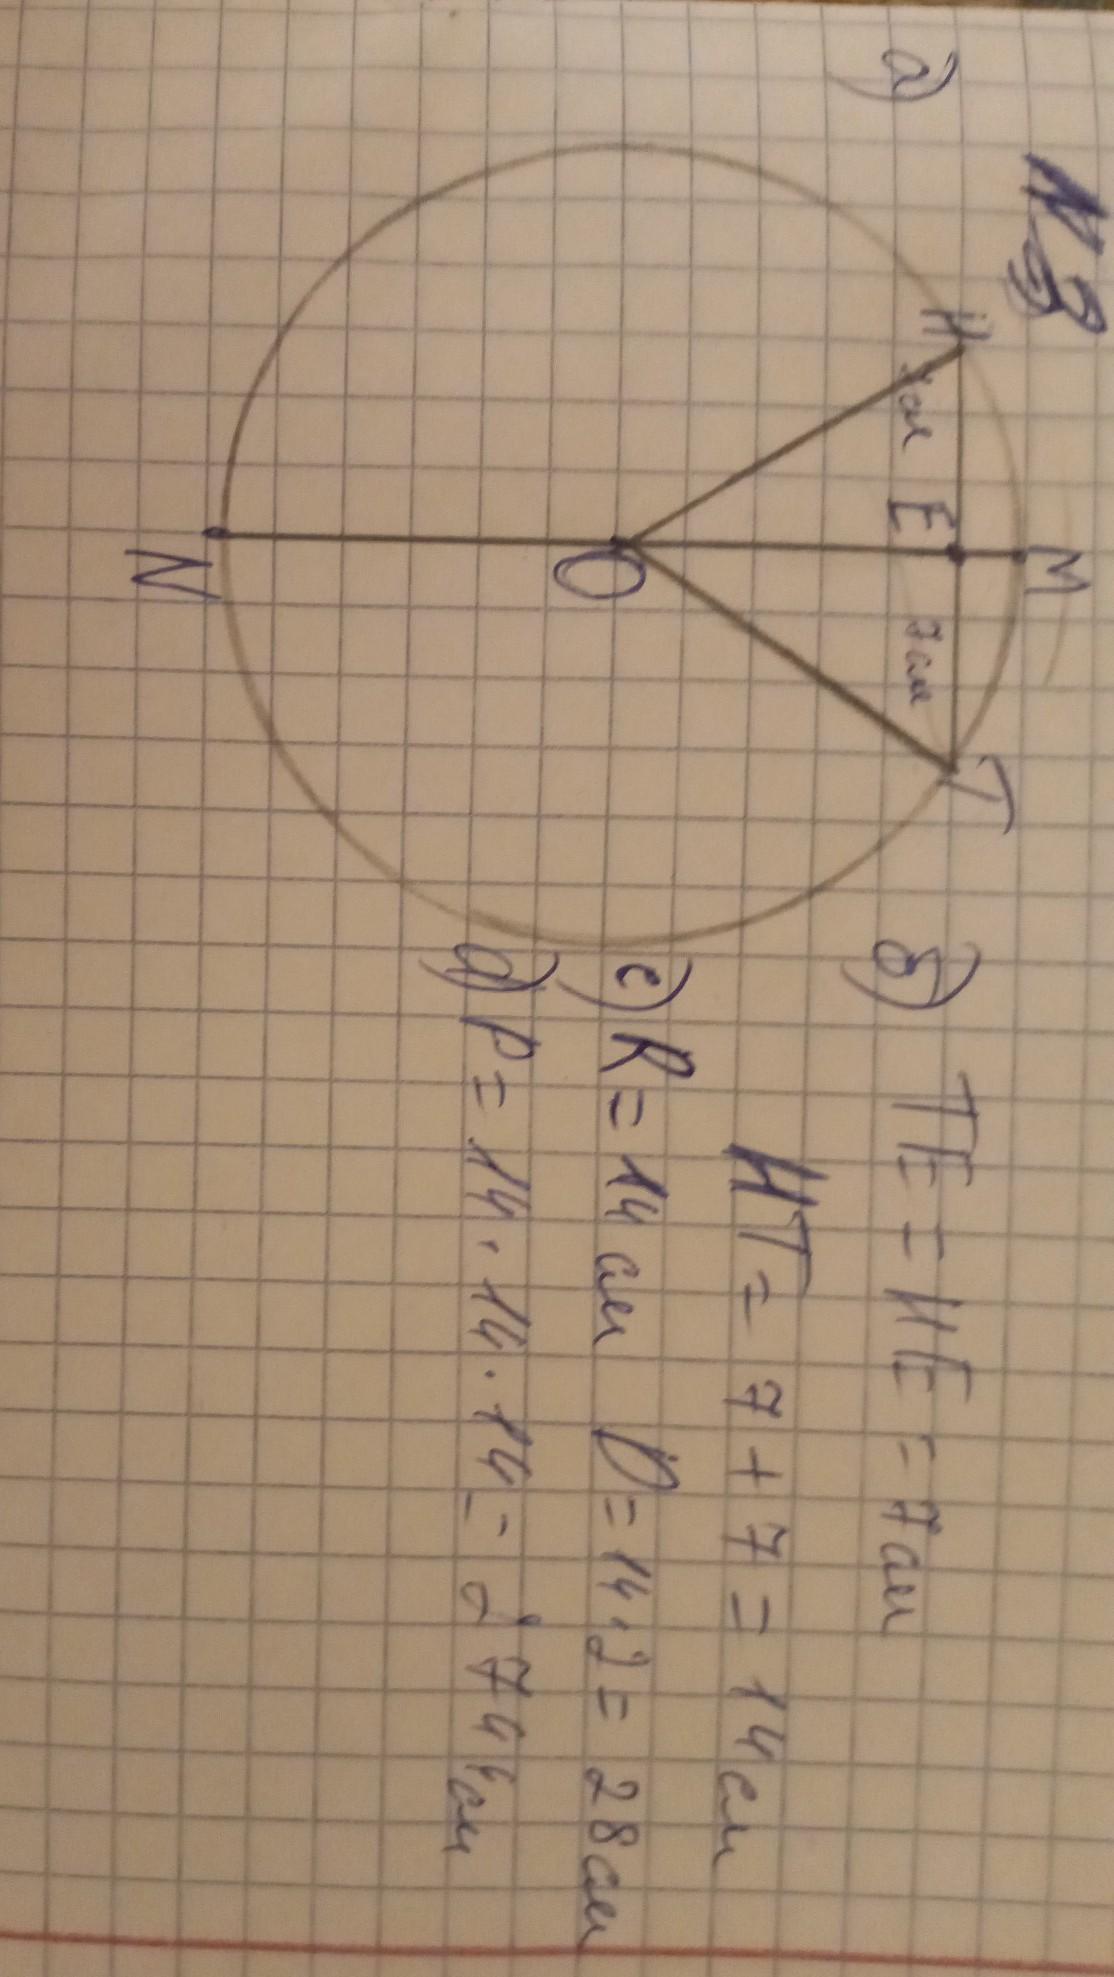 №3
а)
M
H
T
7см
E
7см
O
N
б) TE = HE = 7см
HT = 7 + 7 = 14см
с) R = 14 см D = 14·2 = 28см
д) P = 14·14·14 = 2744см